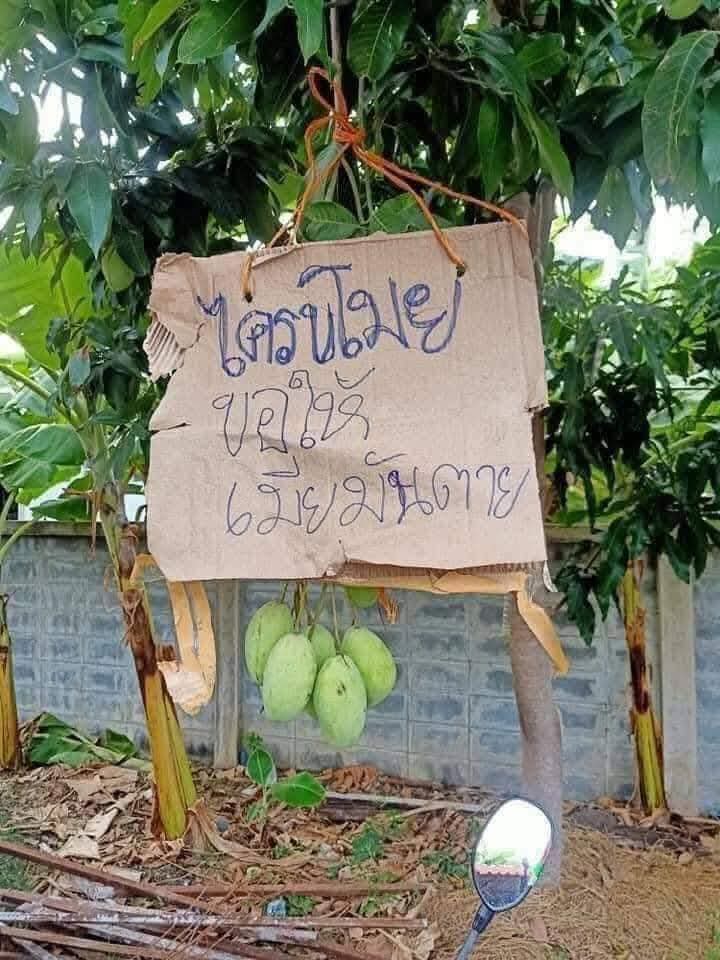 ใครขโมย
ขอให้
เมียมันตาย